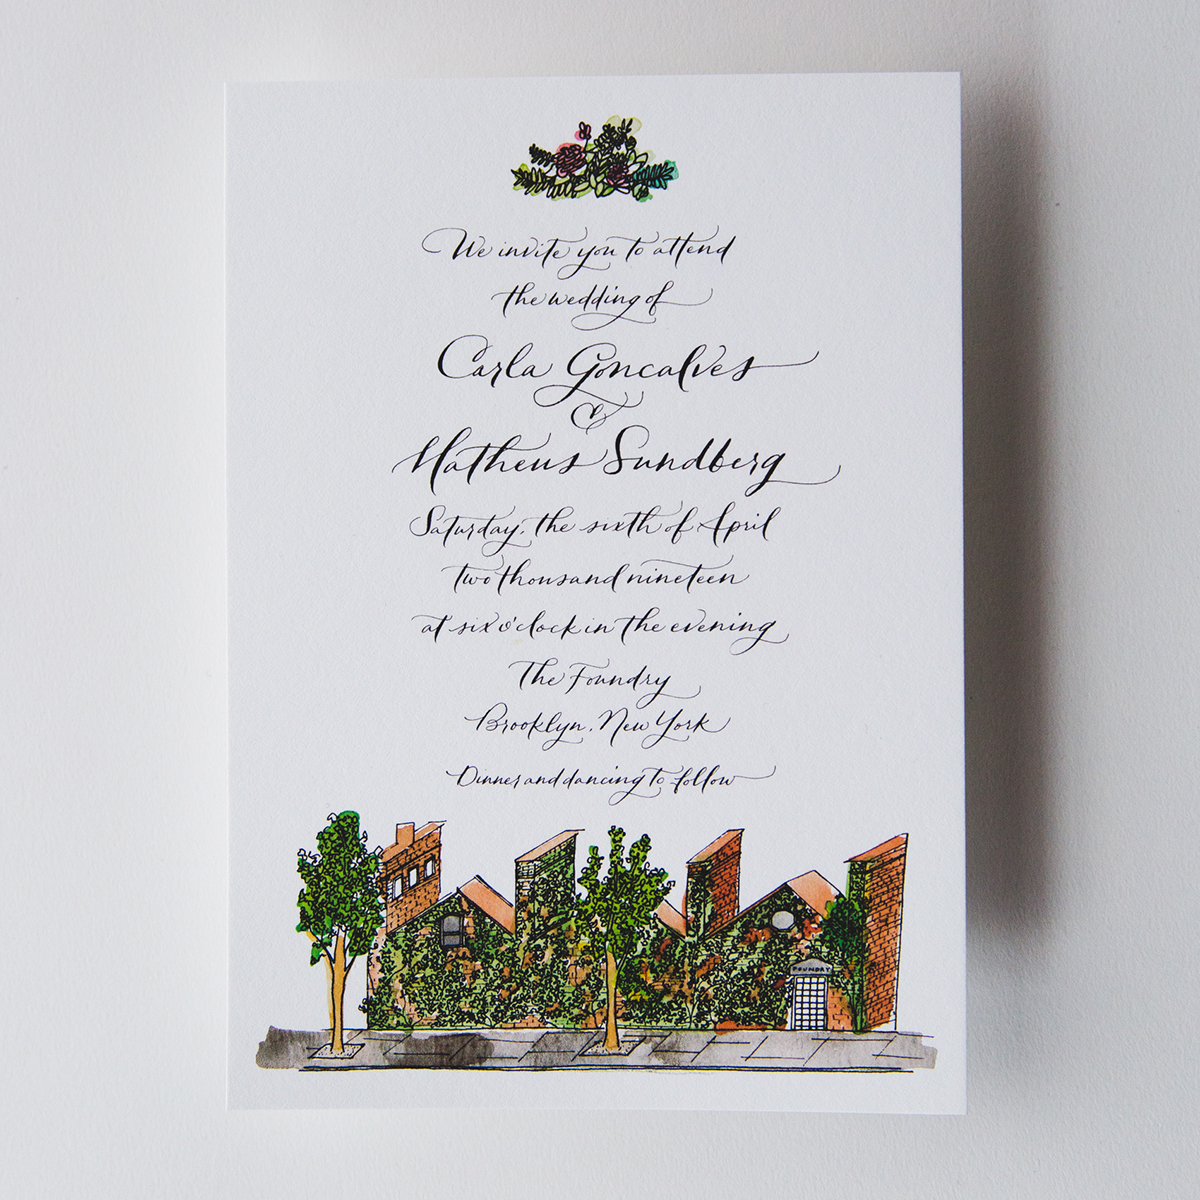 We invite you to attend
the wedding of
Carla Goncalves
&
Matheus Sundberg
Saturday, the sixth of April
two thousand nineteen
at six o'clock in the evening
The Foundry
Brooklyn, New York
Dinner and dancing to follow
FOUNDRY